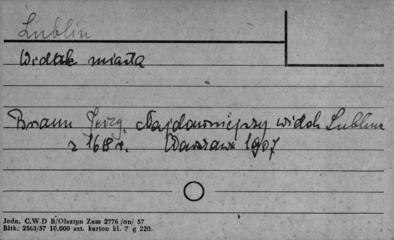 Lublin
Widok miasta
Braun Jerzy. Najdawniejszy widok Lublina
z 1618 r. Warszawa 1907
Jedn. C.W.D B/Olsztyn Zam 2776 /on/ 57
Bltk. 2563/57 10.000 szt. karton kl. 7 g 220.